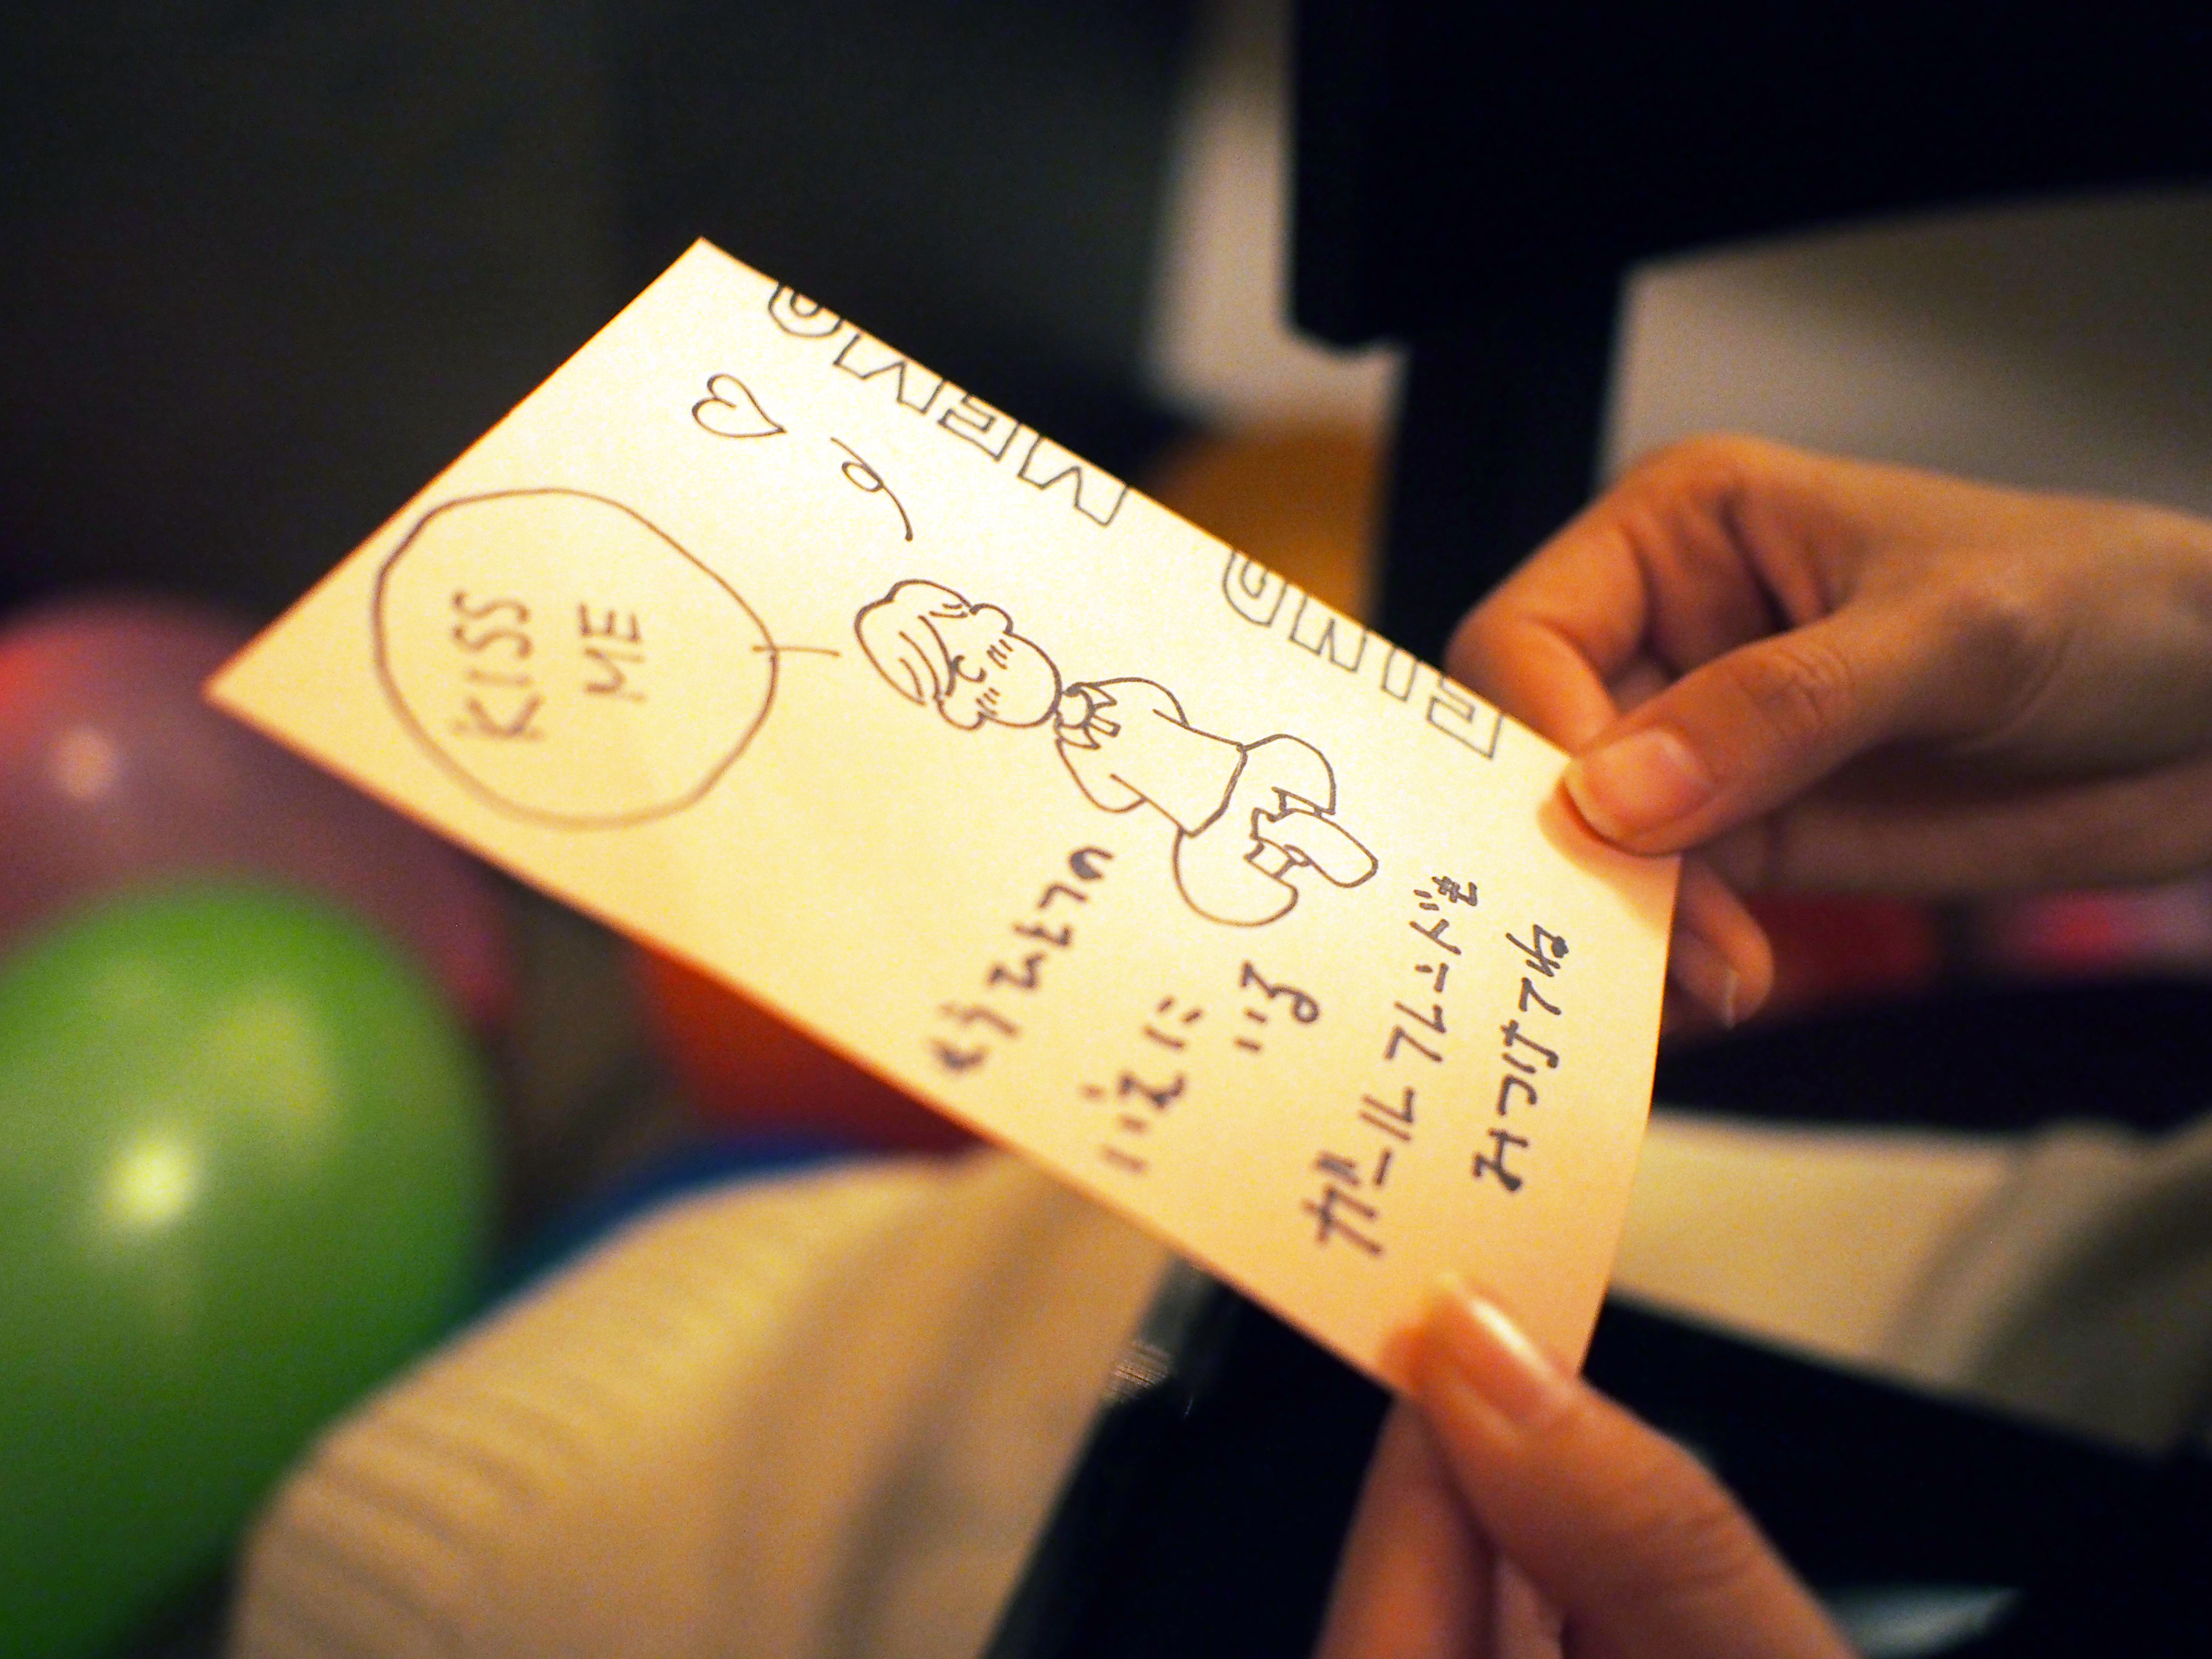 FIND MEMO
KISS
ME
もうひとつの
いえに
いる
ガールフレンドを
みつけてね